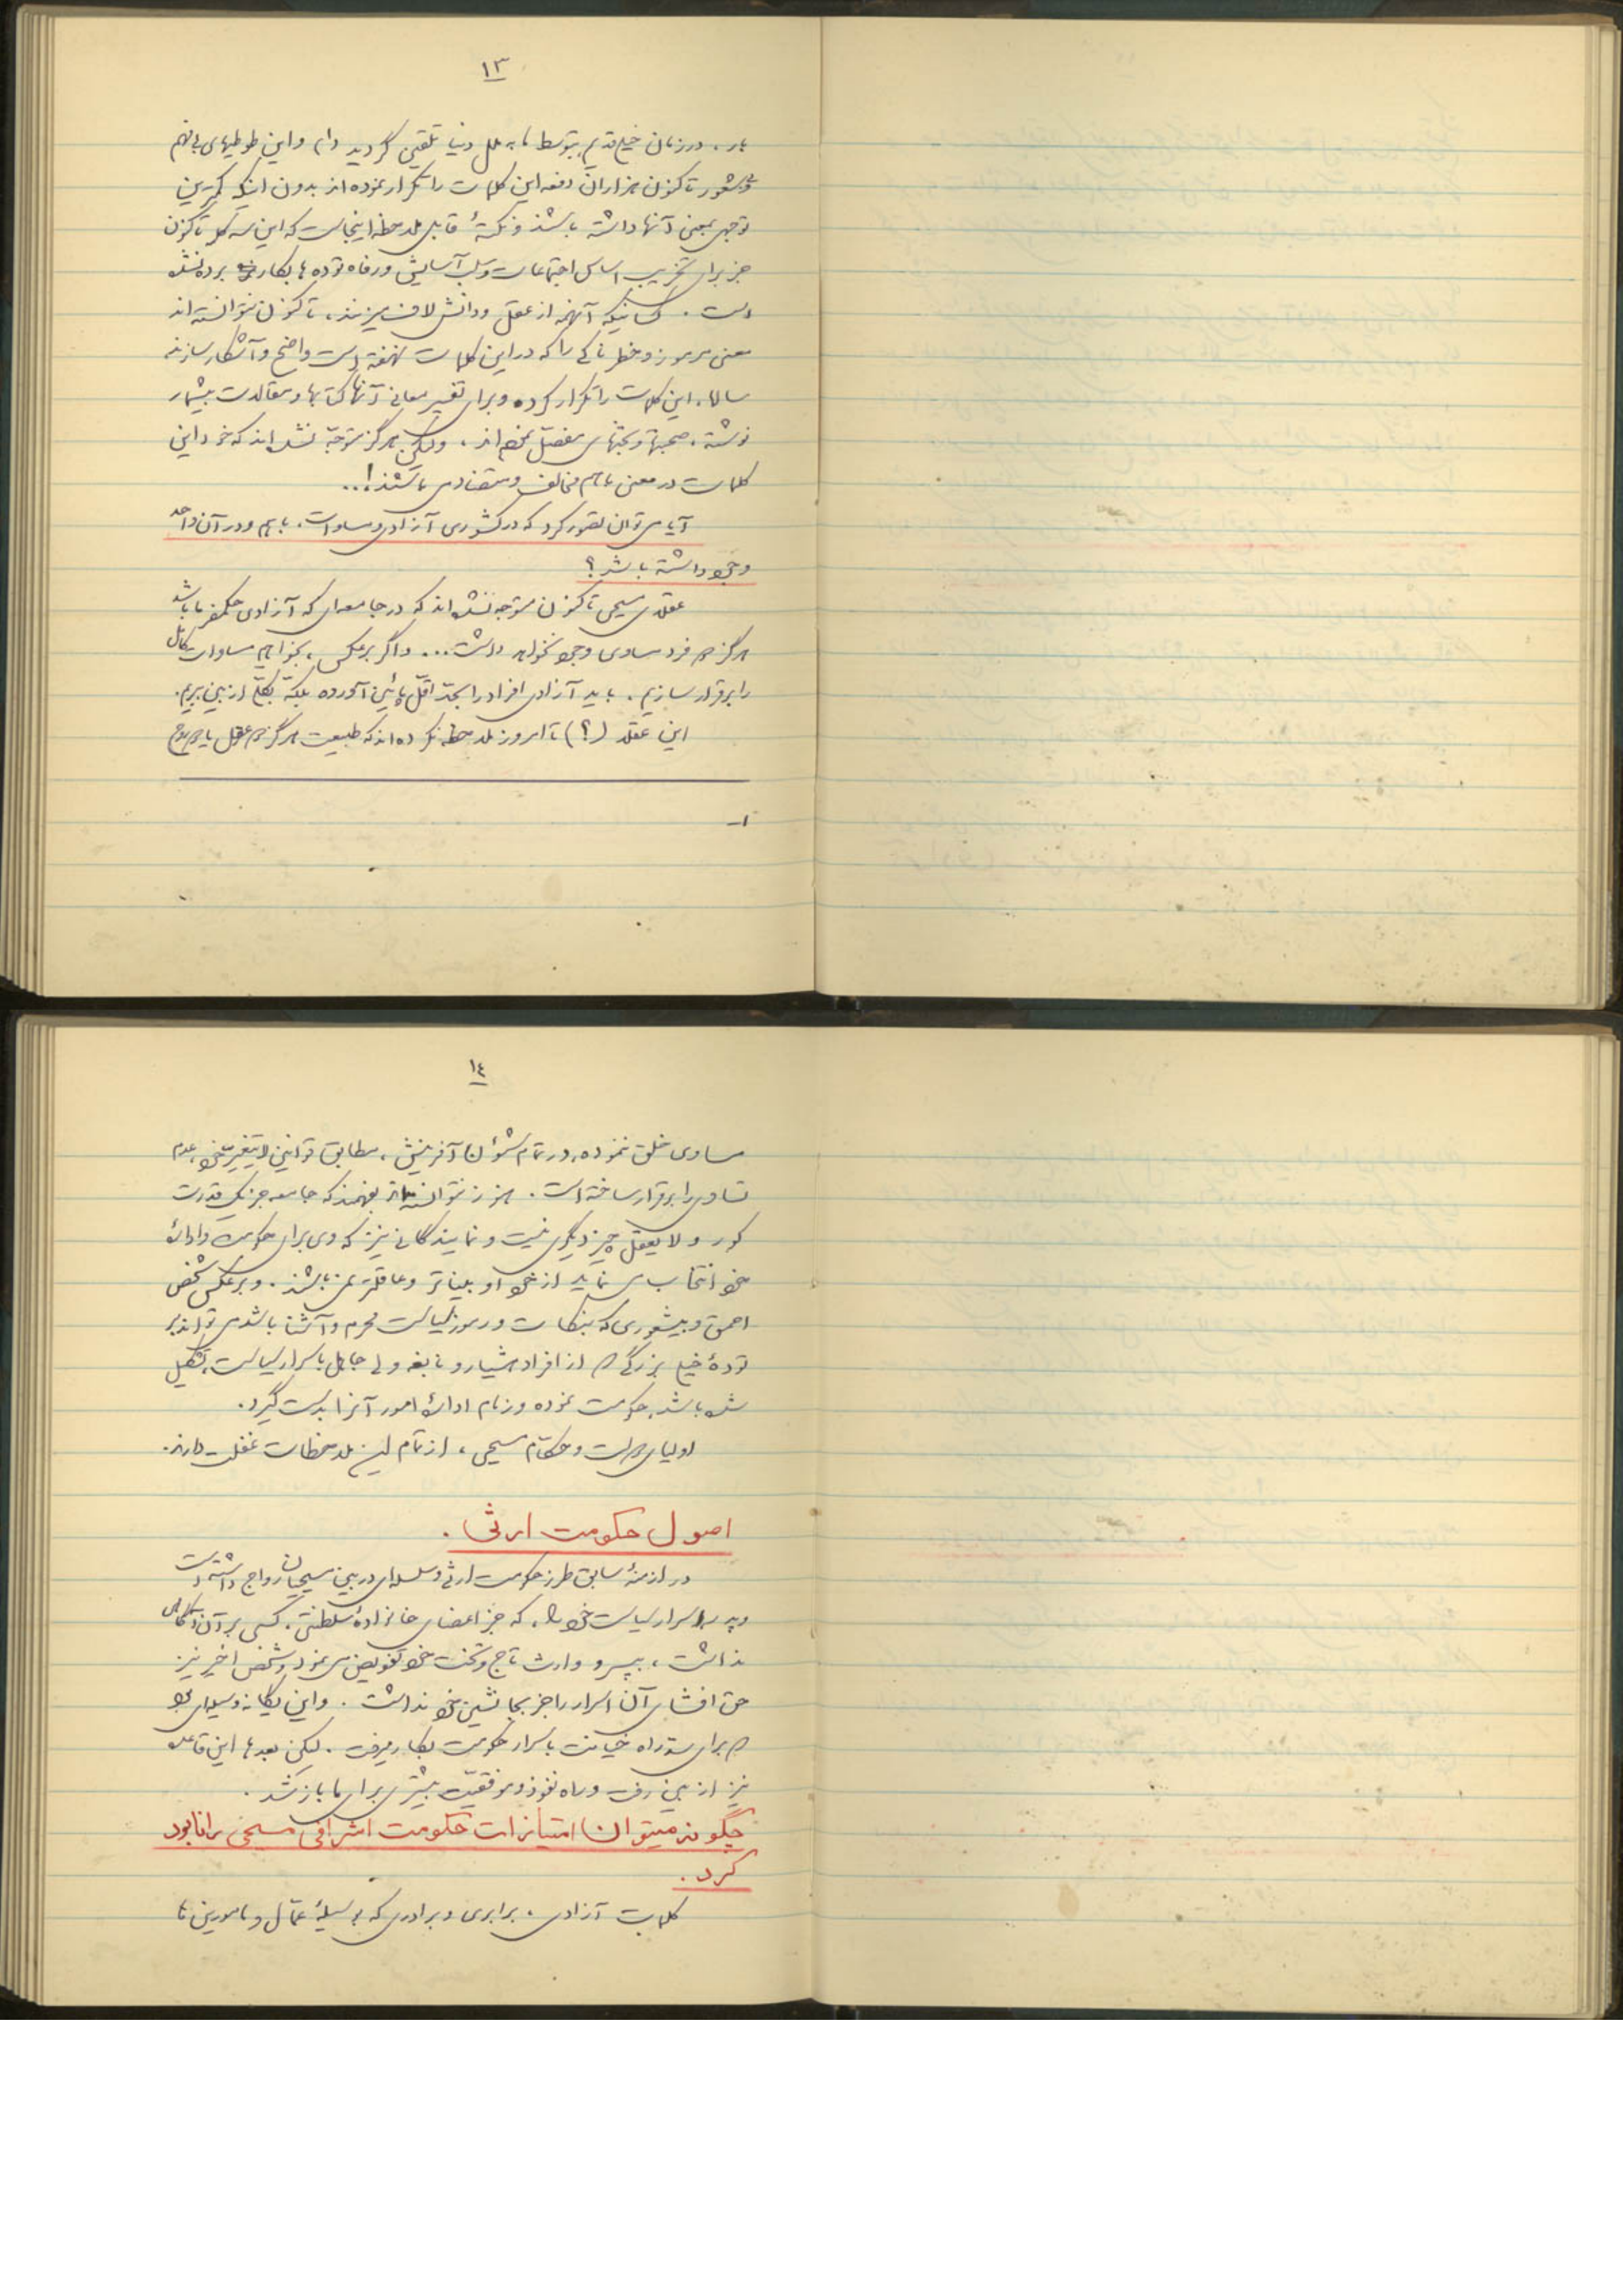 ۱۳
بار، در زمان خیلی قدیم بتوسط ما به ملل دنیا تلقین گردید و این طوطیهای بی فهم
و شعور تاکنون هزاران دفعه این کلمات را تکرار نموده اند بدون اینکه کمترین
توجهی بمعنی آنها داشته باشند و نکتهٔ قابل ملاحظه اینجاست که این سه کلمه تاکنون
جز برای تخریب اساس اجتماعات و سلب آسایش و رفاه توده ها بکار برده نشده
است. کسانیکه آنهمه از عقل و دانش لاف میزنند، تاکنون نتوانسته اند
معنی مرموز و خطرناکی را که در این کلمات نهفته است واضح و آشکار سازند
سالها، این کلمات را تکرار کرده و برای تفسیر معانی آنها کتابها و مقالات بیشمار
نوشته، صحبتها و بحثهای مفصل نموده اند، ولیکن هرگز متوجه نشده اند که خود این
کلمات در معنی باهم مخالف و متضاد می باشند!..
آیا می توان تصور کرد که در کشوری آزادی و مساوات، باهم و در آن واحد
وجود داشته باشد؟
عقلای مسیحی تاکنون متوجه نشده اند که در جامعه ای که آزادی حکمفرما باشد
هرگز دو فرد مساوی وجود نخواهد داشت... و اگر برعکس، بخواهیم مساوات کامل
را برقرار سازیم، باید آزادی افراد را بحد اقل پائین آورده بلکه بکلی از بین ببریم.
این عقلا (؟) تا امروز ملاحظه نکرده اند که طبیعت هرگز دو عقل یا دو روح
۱-
۱٤
مساوی خلق ننموده، در تمام شئون آفرینش، مطابق قوانین لایتغیر خود، عدم
تساوی را برقرار ساخته است. هنوز نتوانسته اند بفهمند که جامعه جز یک قدرت
کور و لا یعقل چیز دیگری نیست و نمایندگانی نیز که وی برای حکومت و ادارهٔ
خود انتخاب می نماید از خود او بیناتر و عاقلتر نمی باشند. و برعکس شخص
احمق و بیشعوری که بنکات و رموز سیاست محرم و آشنا باشد می تواند بر
تودهٔ خیلی بزرگی که از افراد هشیار و نابغه ولی جاهل باسرار سیاست، تشکیل
شده باشد، حکومت نموده و زمام ادارهٔ امور آنرا بدست گیرد.
اولیای دولت و حکام مسیحی، از تمام این ملاحظات غفلت دارند.
اصول حکومت ارثی.
در ازمنهٔ سابق طرز حکومت ارثی و سلسله ای در بین مسیحیان رواج داشته است
و پدر اسرار سیاست خود را، که جز اعضای خانوادهٔ سلطنتی، کسی بر آن آگاهی
نداشت، بپسر و وارث تاج و تخت خود تفویض می نمود و شخص اخیر نیز
حق افشای آن اسرار را جز بجانشین خود نداشت. و این یگانه وسیله ای بود
که برای سد راه خیانت باسرار حکومت بکار میرفت. لیکن بعدها این قاعده
نیز از بین رفت و راه نفوذ و موفقیت بیشتری برای ما باز شد.
چگونه میتوان امتیازات حکومت اشرافی مسیحی را نابود
کرد.
کلمات آزادی، برابری و برادری که بوسیلهٔ عمال و مامورین ما